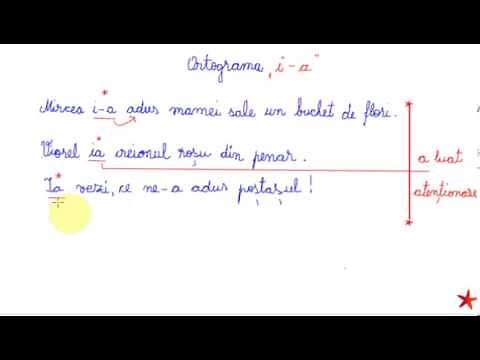 Ortograma „i-a”
Mircea i-a adus mamei sale un buchet de flori.
Viorel ia creionul roșu din penar.
a luat
Ia vezi, ce ne-a adus poștașul !
atenționare